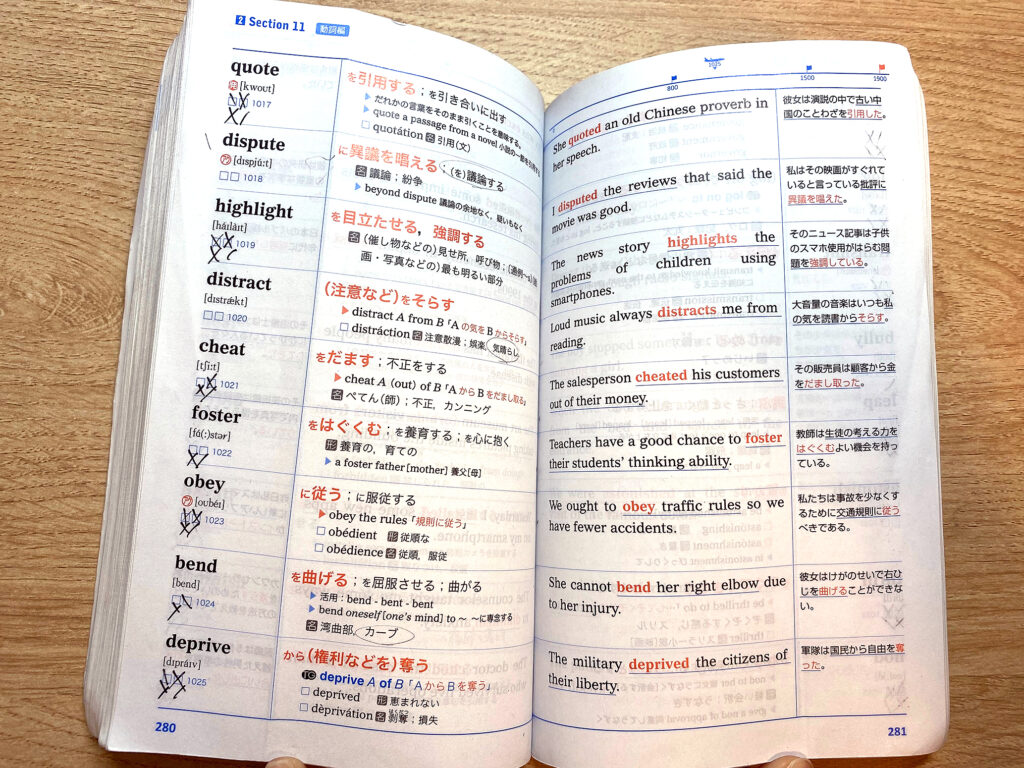 2 Section 11 動詞編
quote
[kwoʊt]
1017
を引用する；を引き合いに出す
▶ だれかの言葉をそのまま引くことを意味する。
▶ quote a passage from a novel 小説の一節を引用する
□ quotátion 名 引用(文)
dispute
ア [dɪspjúːt]
□□ 1018
に異議を唱える；(を)議論する
名 議論；紛争
▶ beyond dispute 議論の余地なく，疑いもなく
highlight
[háɪlàɪt]
1019
を目立たせる，強調する
名 (催し物などの)見せ所，呼び物；(通例～s)(絵
画・写真などの)最も明るい部分
distract
[dɪstrǽkt]
□□ 1020
(注意など)をそらす
▶ distract A from B「Aの気をBからそらす」
□ distráction 名 注意散漫；娯楽，気晴らし
cheat
[tʃiːt]
1021
をだます；不正をする
▶ cheat A (out) of B「AからBをだまし取る」
名 ぺてん(師)；不正，カンニング
foster
[fá(ː)stər]
1022
をはぐくむ；を養育する；を心に抱く
形 養育の，育ての
▶ a foster father[mother] 養父[母]
obey
ア [oʊbéɪ]
1023
に従う；に服従する
▶ obey the rules「規則に従う」
□ obédient 形 従順な
□ obédience 名 従順，服従
bend
[bend]
1024
を曲げる；を屈服させる；曲がる
▶ 活用：bend - bent - bent
▶ bend oneself [one's mind] to ～ ～に専念する
名 湾曲部，カーブ
deprive
[dɪpráɪv]
1025
から(権利などを)奪う
TG deprive A of B「AからBを奪う」
□ deprived 形 恵まれない
□ dèprivátion 名 剥奪；損失
280
1025
800
1500
1900
She quoted an old Chinese proverb in
her speech.
彼女は演説の中で古い中
国のことわざを引用した。
I disputed the reviews that said the
movie was good.
私はその映画がすぐれて
いると言っている批評に
異議を唱えた。
The news story highlights the
problems of children using
smartphones.
そのニュース記事は子供
のスマホ使用がはらむ問
題を強調している。
Loud music always distracts me from
reading.
大音量の音楽はいつも私
の気を読書からそらす。
The salesperson cheated his customers
out of their money.
その販売員は顧客から金
をだまし取った。
Teachers have a good chance to foster
their students' thinking ability.
教師は生徒の考える力を
はぐくむよい機会を持っ
ている。
We ought to obey traffic rules so we
have fewer accidents.
私たちは事故を少なくす
るために交通規則に従う
べきである。
She cannot bend her right elbow due
to her injury.
彼女はけがのせいで右ひ
じを曲げることができな
い。
The military deprived the citizens of
their liberty.
軍隊は国民から自由を奪
った。
281